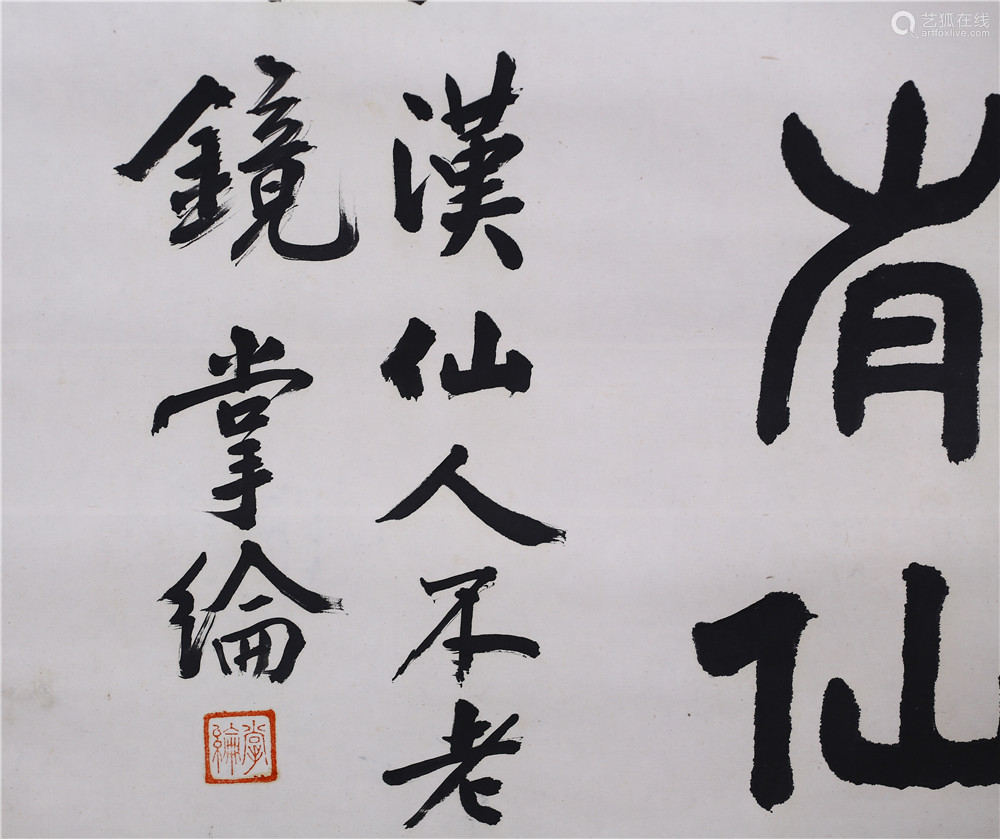 有仙
漢仙人不老
鏡 掌綸
掌綸
艺狐在线
artfoxlive.com